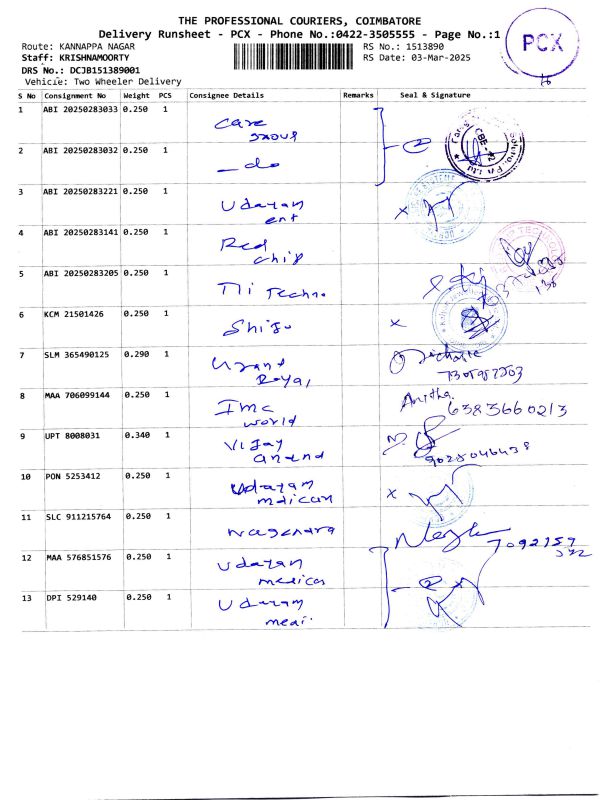 THE PROFESSIONAL COURIERS, COIMBATORE
Delivery Runsheet - PCX - Phone No.:0422-3505555 - Page No.:1
PCX
Route: KANNAPPA NAGAR
RS No.: 1513890
Staff: KRISHNAMOORTY
RS Date: 03-Mar-2025
DRS No.: DCJB151389001
Vehicle: Two Wheeler Delivery
S No Consignment No Weight PCS Consignee Details Remarks Seal & Signature
1 ABI 20250283033 0.250 1 Care
2 ABI 20250283032 0.250 1 - do
2
3 ABI 20250283221 0.250 1 Udayam
ent
x
4 ABI 20250283141 0.250 1 Red
chip
5 ABI 20250283205 0.250 1 TTi Techno
6 KCM 21501426 0.250 1 Shifu
x
7 SLM 365490125 0.290 1 Grand
Royal
8 MAA 706099144 0.250 1 Imc
world
Anitha
6383660213
9 UPT 8008031 0.340 1 Vijay
anand
9028046438
10 PON 5253412 0.250 1 Udayam
medican
x
11 SLC 911215764 0.250 1 Nagendra
7092159
12 MAA 576851576 0.250 1 Udayam
medicos
2 x
13 DPI 529140 0.250 1 Udayam
medi